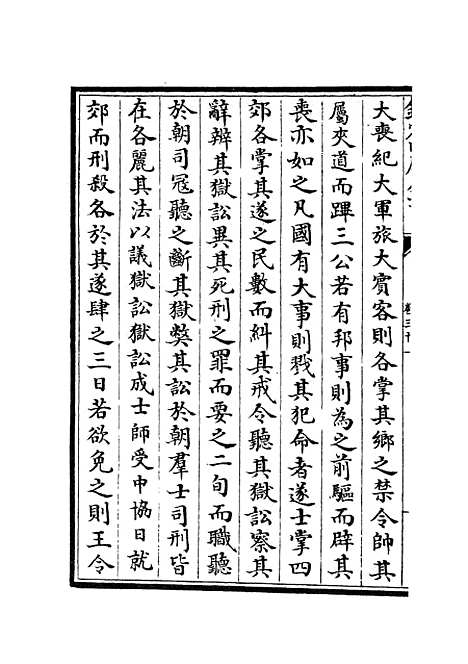 大喪紀大軍旅大賓客則各掌其鄉之禁令帥其
屬夾道而蹕三公若有邦事則為之前驅而辟其
喪亦如之凡國有大事則戮其犯命者遂士掌四
郊各掌其遂之民數而糾其戒令聽其獄訟察其
辭辨其獄訟異其死刑之罪而要之二旬而職聽
於朝司寇聽之斷其獄獘其訟於朝羣士司刑皆
在各麗其法以議獄訟獄訟成士師受中協日就
郊而刑殺各於其遂肆之三日若欲免之則王令